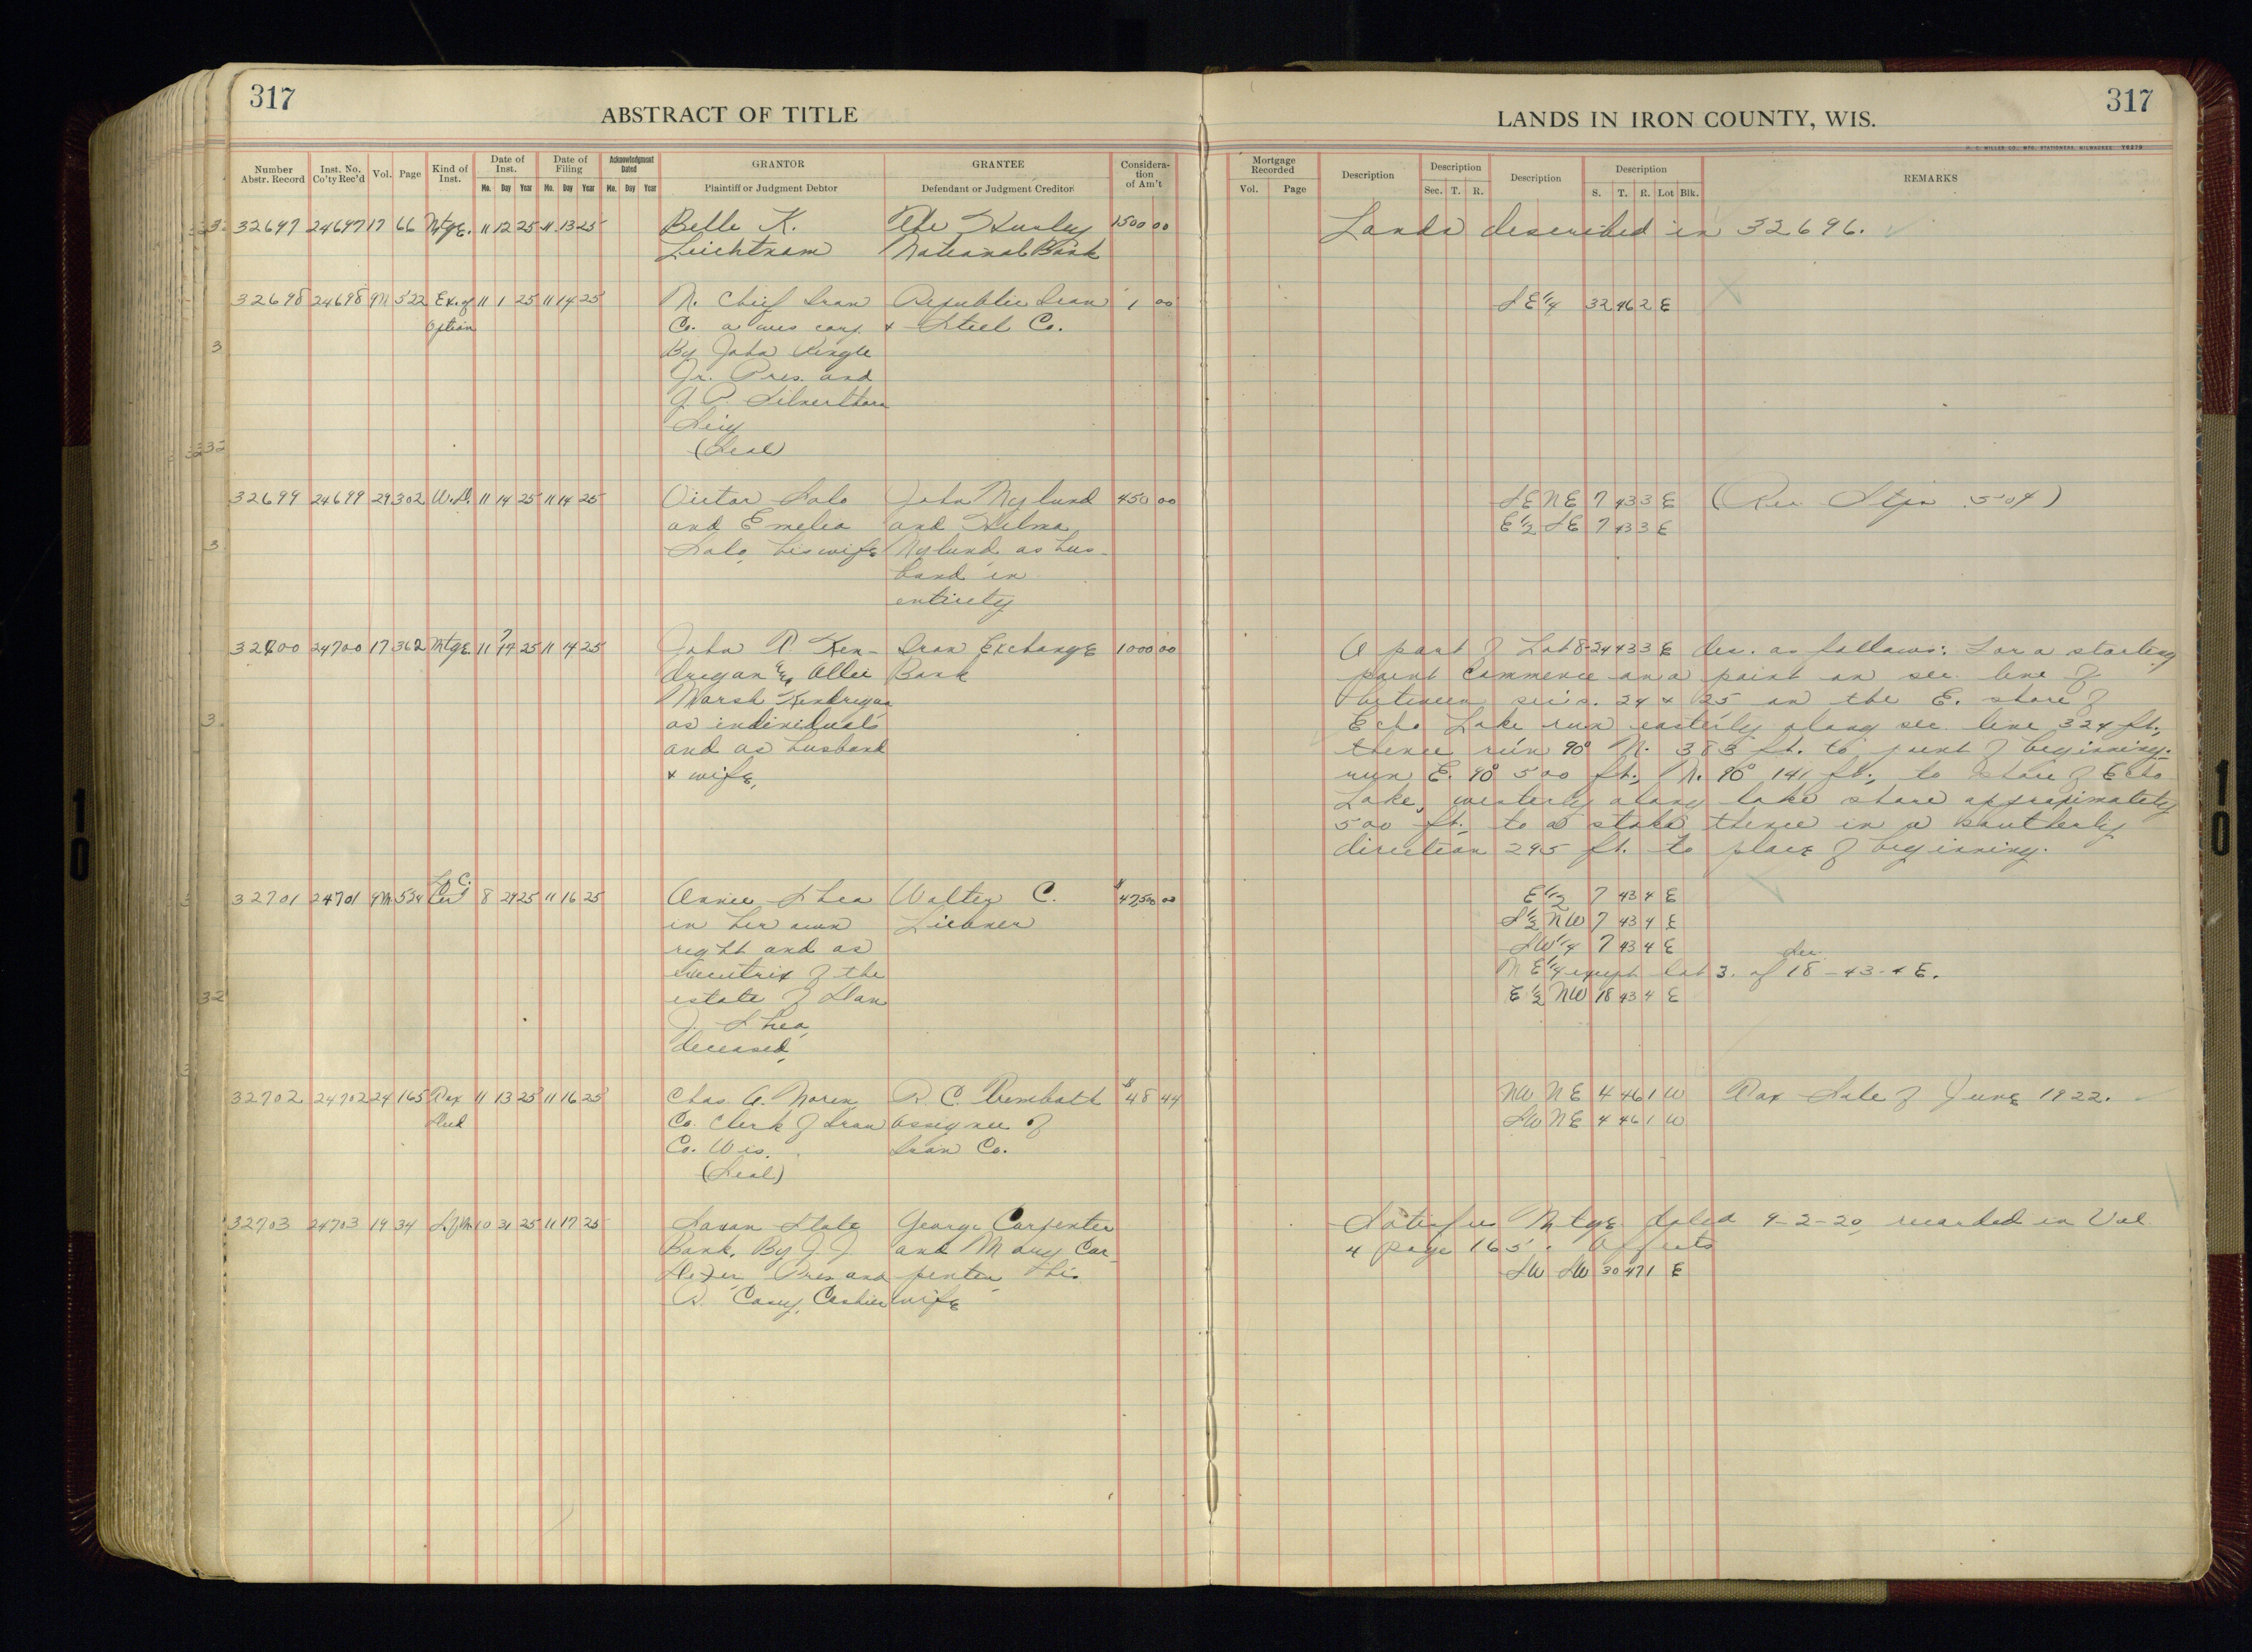 317
ABSTRACT OF TITLE
Number Abstr. Record
Inst. No. Co'ty Rec'd
Vol.
Page
Kind of Inst.
Date of Inst.
Mo. Day Year
Date of Filing
Mo. Day Year
Acknowledgment Dated
Mo. Day Year
GRANTOR
Plaintiff or Judgment Debtor
GRANTEE
Defendant or Judgment Creditor
Considera-
tion
of Am't
32697 24697 17 66 Mtge. 11 12 25 11 13 25 Belle K. The Hurley 1500 00
Leichtnam National Bank
32698 24698 9M 522 Ex. of 11 1 25 11 14 25 N. Chief Iron Republic Iron 1 00
Option Co. a wis corp. & Steel Co.
By John Pingle
Jr. Pres. and
G. P. Silverthorn
Secy
(Seal)
32699 24699 29 302 W.D. 11 14 25 11 14 25 Victor Salo John Nylund 450 00
and Emelia and Hilma
Salo, his wife Nylund as hus-
band in
entirety
32700 24700 17 362 Mtge 11 14 25 11 14 25 John R. Ken- Iron Exchange 1000 00
dregan & Ollie Bank
Marsh Kendregan
as individuals
and as husband
& wife,
L. C.
32701 24701 9M 524 Cert 8 29 25 11 16 25 Annie Shea Walter C. $47,500 00
in her own
right and as
executrix of the
estate of Dan
J. Shea,
deceased,
32702 24702 24 165 Tax 11 13 25 11 16 25 Chas. A. Noren R. C. Trembath $48 44
Deed Co. Clerk of Iron assignee of
Co. Wis. Iron Co.
(Seal)
32703 24703 19 34 S.of M. 10 31 25 11 17 25 Saxon State George Carpenter
Bank, By J. J. and Mary Car-
Pres and penter, his
Casey, Cashier wife
317
LANDS IN IRON COUNTY, WIS.
H. C. MILLER CO., MFG. STATIONERS, MILWAUKEE
Mortgage Recorded
Vol. Page
Description
Description
Sec. T. R.
Description
Description
S. T. R. Lot Blk.
REMARKS
Lands described in 32696.
SE 1/4 32 46 2 E
SE NE 7 43 3 E (Rev. Stp. .50¢)
E 1/2 SE 7 43 3 E
A part of Lot 8-24 43 3 E des. as follows: For a starting
point commence on a point on sec. line
between sec's. 24 & 25 on the E. shore of
Echo Lake run easterly along sec. line 324 ft.,
thence run 90° N. 383 ft. to point of beginning.
run E. 90° 500 ft., N. 90° 141 ft., to shore of Echo
Lake, westerly along lake shore approximately
500 ft. to a stake thence in a southerly
direction 295 ft. to place of beginning.
E 1/2 7 43 4 E
S 1/2 NW 7 43 4 E
SW 1/4 7 43 4 E
NE 1/4 except Lot 3. of Sec. 18-43-4 E.
E 1/2 NW 18 43 4 E
NW NE 4 46 1 W Tax Sale of June 1922.
SW NE 4 46 1 W
Satisfies Mtge dated 9-2-20, recorded in Vol
4 page 165. Affects
SW SW 30 47 1 E
10
10